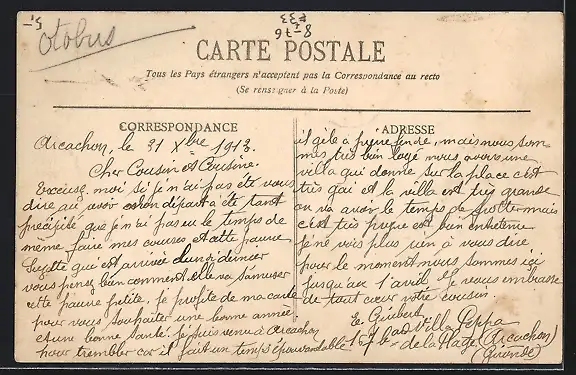 5.-
otobus
8-76
£33
CARTE POSTALE
Tous les Pays étrangers n'acceptent pas la Correspondance au recto
(Se renseigner à la Poste)
CORRESPONDANCE
Arcachon, le 31 Xbre 1913.
Cher Cousin et Cousine.
Excuse, moi si je n'ai pas été vous
dire au avoir a mon départ a été tant
précipité, que je n'ai pas eu le temps de
même faire mes courses et cette pauvre
Suzette qui est arrivée lundi dernier
vous pensez bien comment elle va s'amuser
cette pauvre petite. Je profite de ma carte
pour vous souhaiter une bonne année
et une bonne santé. je suis venu à Arcachon
pour trembler car il fait un temps épouvantable
ADRESSE
il gèle a pierre fendre, mais nous som-
mes très bien logé nous avons une
villa qui donne sur la place c'est
très gai et la ville est très grande
on va avoir le temps de mais
c'est très propre et bien entretenue
Je ne vois plus rien à vous dire
pour le moment nous sommes ici
jusqu'au 1 avril Je vous embrasse
de tout cœur votre cousin.
Villa Peppa
de la Plage (Arcachon)
(Gironde)